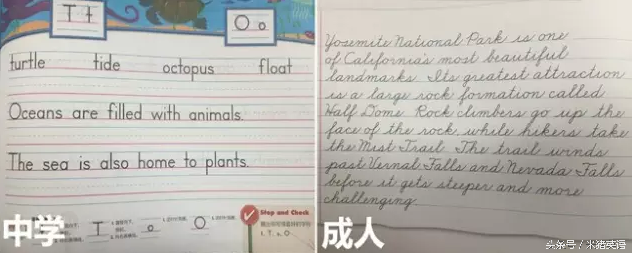 T t
O o
turtle tide octopus float
Oceans are filled with animals.
The sea is also home to plants.
T
o
O
Step and Check
中学
Yosemite National Park is one
of California's most beautiful
landmarks. Its greatest attraction
is a large rock formation called
Half Dome. Rock climbers go up the
face of the rock, while hikers take
the Mist Trail. The trail winds
past Vernal Falls and Nevada Falls
before it gets steeper and more
challenging.
成人
头条号 / 米猪英语